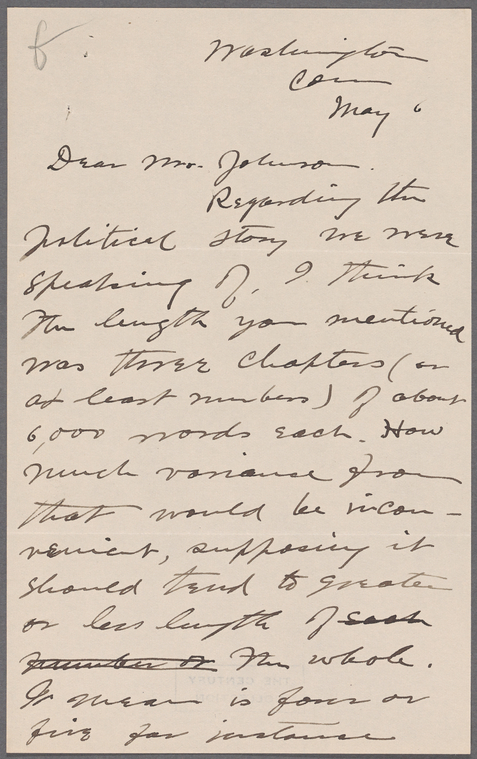 Washington
Conn
May 6
Dear Mr. Johnson.
Regarding the
political story we were
speaking of, I think
the length you mentioned
was three chapters (or
at least numbers) of about
6,000 words each. How
much variance from
that would be incon-
venient, supposing it
should tend to greater
or less length of each
number or the whole.
I mean is four or
five for instance
THE CENTURY
COLLECTION